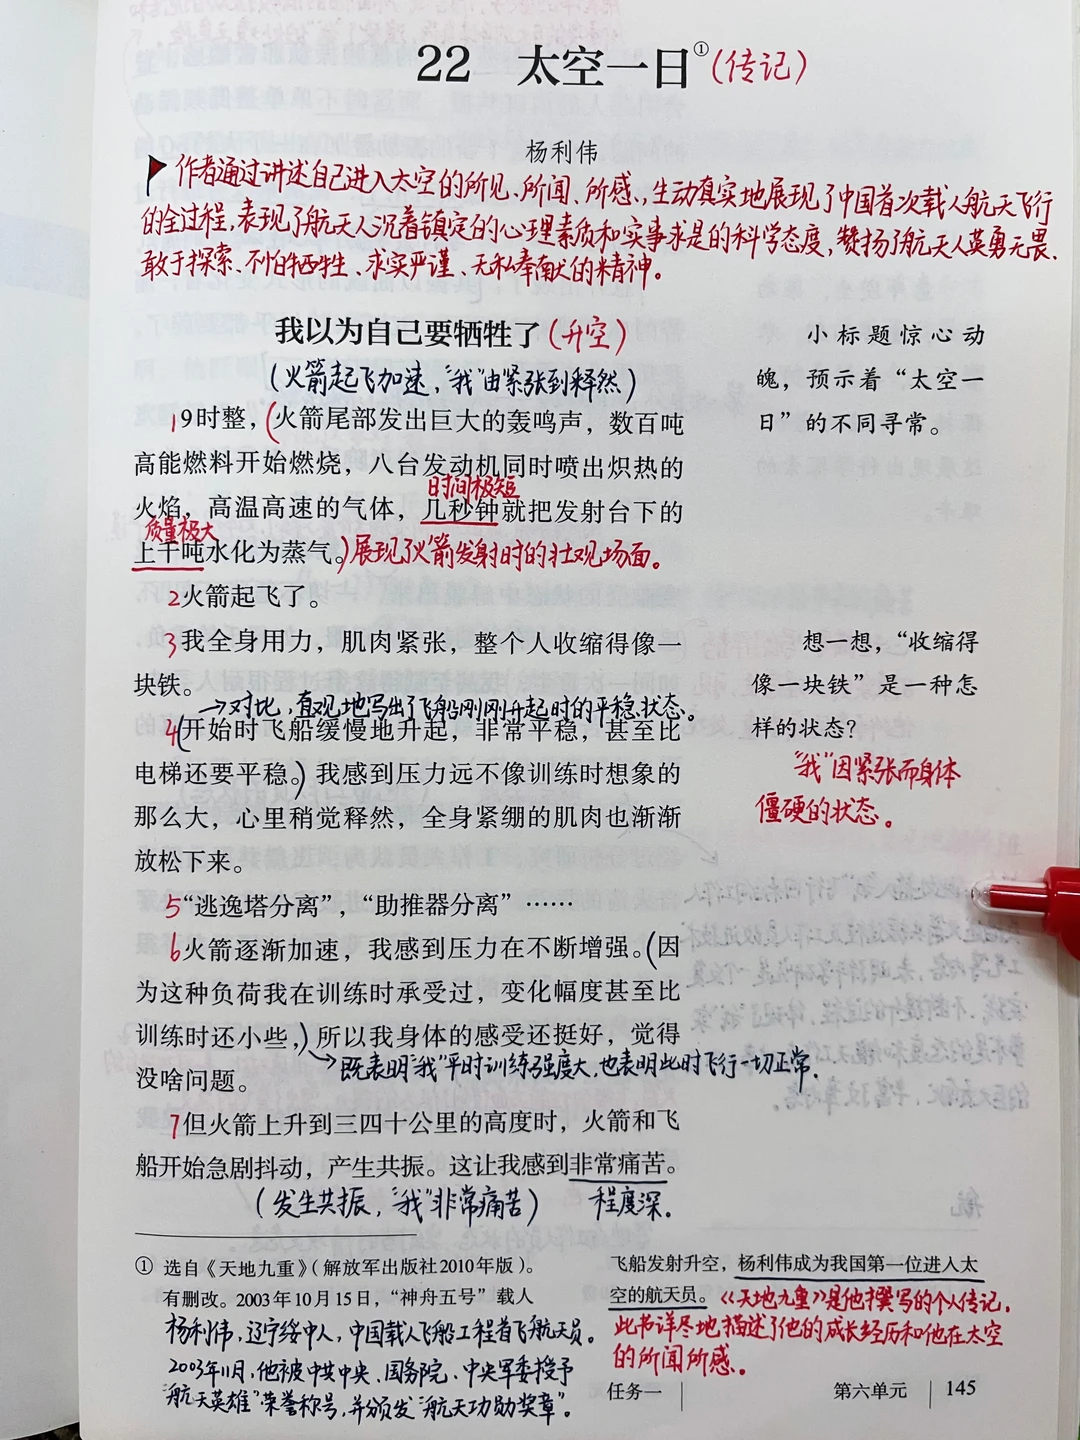 22 太空一日①(传记)
杨利伟
作者通过讲述自己进入太空的所见、所闻、所感,生动真实地展现了中国首次载人航天飞行
的全过程,表现了航天人沉着镇定的心理素质和实事求是的科学态度,赞扬了航天人英勇无畏、
敢于探索、不怕牺牲、求实严谨、无私奉献的精神。
我以为自己要牺牲了(升空)
(火箭起飞加速,“我”由紧张到释然)
小标题惊心动
魄,预示着“太空一
日”的不同寻常。
1 9时整,(火箭尾部发出巨大的轰鸣声,数百吨
高能燃料开始燃烧,八台发动机同时喷出炽热的
时间极短
火焰,高温高速的气体,几秒钟就把发射台下的
质量极大
上千吨水化为蒸气。)展现了火箭发射时的壮观场面。
2火箭起飞了。
3我全身用力,肌肉紧张,整个人收缩得像一
块铁。
→对比,直观地写出了飞船刚刚升起时的平稳状态。
想一想,“收缩得
像一块铁”是一种怎
样的状态?
“我”因紧张而身体
僵硬的状态。
4(开始时飞船缓慢地升起,非常平稳,甚至比
电梯还要平稳。)我感到压力远不像训练时想象的
那么大,心里稍觉释然,全身紧绷的肌肉也渐渐
放松下来。
5“逃逸塔分离”,“助推器分离”……
6火箭逐渐加速,我感到压力在不断增强。(因
为这种负荷我在训练时承受过,变化幅度甚至比
训练时还小些,)所以我身体的感受还挺好,觉得
→既表明“我”平时训练强度大,也表明此时飞行一切正常.
没啥问题。
7但火箭上升到三四十公里的高度时,火箭和飞
船开始急剧抖动,产生共振。这让我感到非常痛苦。
(发生共振,“我”非常痛苦) 程度深.
① 选自《天地九重》(解放军出版社2010年版)。
有删改。2003年10月15日,“神舟五号”载人
飞船发射升空,杨利伟成为我国第一位进入太
空的航天员。《天地九重》是他撰写的个人传记,
此书详尽地描述了他的成长经历和他在太空
的所闻所感。
杨利伟,辽宁绥中人,中国载人飞船工程首飞航天员。
2003年11月,他被中共中央、国务院、中央军委授予
“航天英雄”荣誉称号,并颁发“航天功勋奖章”。
任务一 | 第六单元 | 145